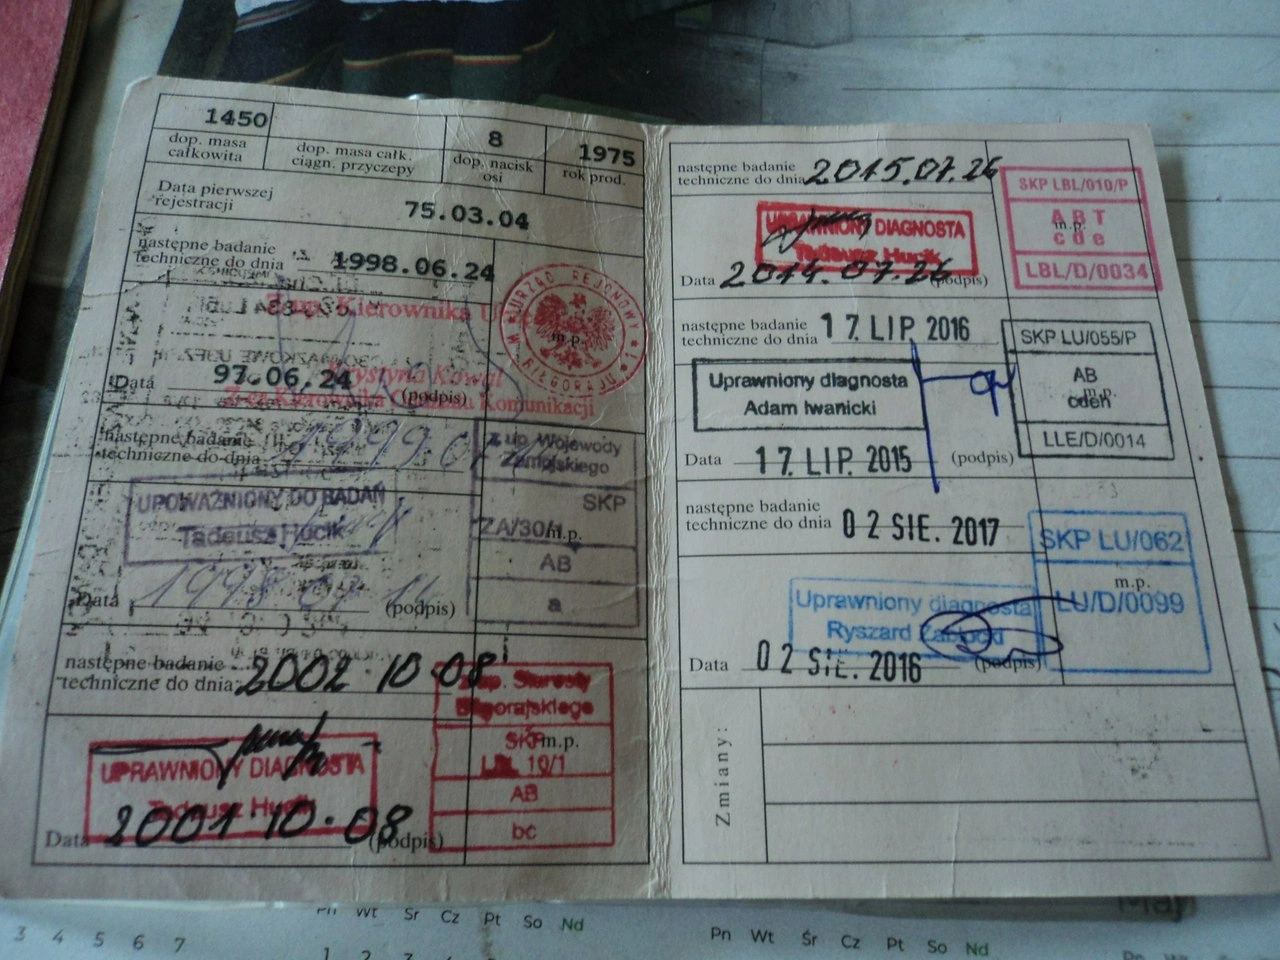 1450
dop. masa
całkowita
dop. masa całk.
ciągn. przyczepy
8
dop. nacisk
osi
1975
rok prod.
Data pierwszej
rejestracji
75.03.04
następne badanie
techniczne do dnia
1998.06.24
URZĄD REJONOWY
W BIŁGORAJU
m.p.
Kierownika
Krystyna Kowal
Kierownika Komunikacji
Data
97.06.24
(podpis)
następne badanie
techniczne do dnia
1999.07
z up. Wojewody
Zamojskiego
SKP
ZA/30/1
m.p.
AB
a
UPOWAŻNIONY DO BADAŃ
Tadeusz Hucik
Data
(podpis)
następne badanie
techniczne do dnia
2002.10.08
z up. Starosty
Biłgorajskiego
SKP
m.p.
LBL 10/1
AB
bc
UPRAWNIONY DIAGNOSTA
Tadeusz Hucik
Data
2001.10.08
(podpis)
następne badanie
techniczne do dnia
2015.07.26
SKP LBL/010/P
ABT
m.p.
cde
LBL/D/0034
UPRAWNIONY DIAGNOSTA
Tadeusz Hucik
Data
2014.07.26
(podpis)
następne badanie
techniczne do dnia
17. LIP. 2016
SKP LU/055/P
AB
m.p.
cdeh
LLE/D/0014
Uprawniony diagnosta
Adam Iwanicki
Data
17. LIP. 2015
(podpis)
następne badanie
techniczne do dnia
02 SIE. 2017
SKP LU/062
m.p.
LU/D/0099
Uprawniony diagnosta
Ryszard
Data
02 SIE. 2016
(podpis)
Zmiany:
Pn Wt Śr Cz Pt So Nd
3 4 5 6 7
1 2 3
Pn Wt Śr Cz Pt So Nd
May